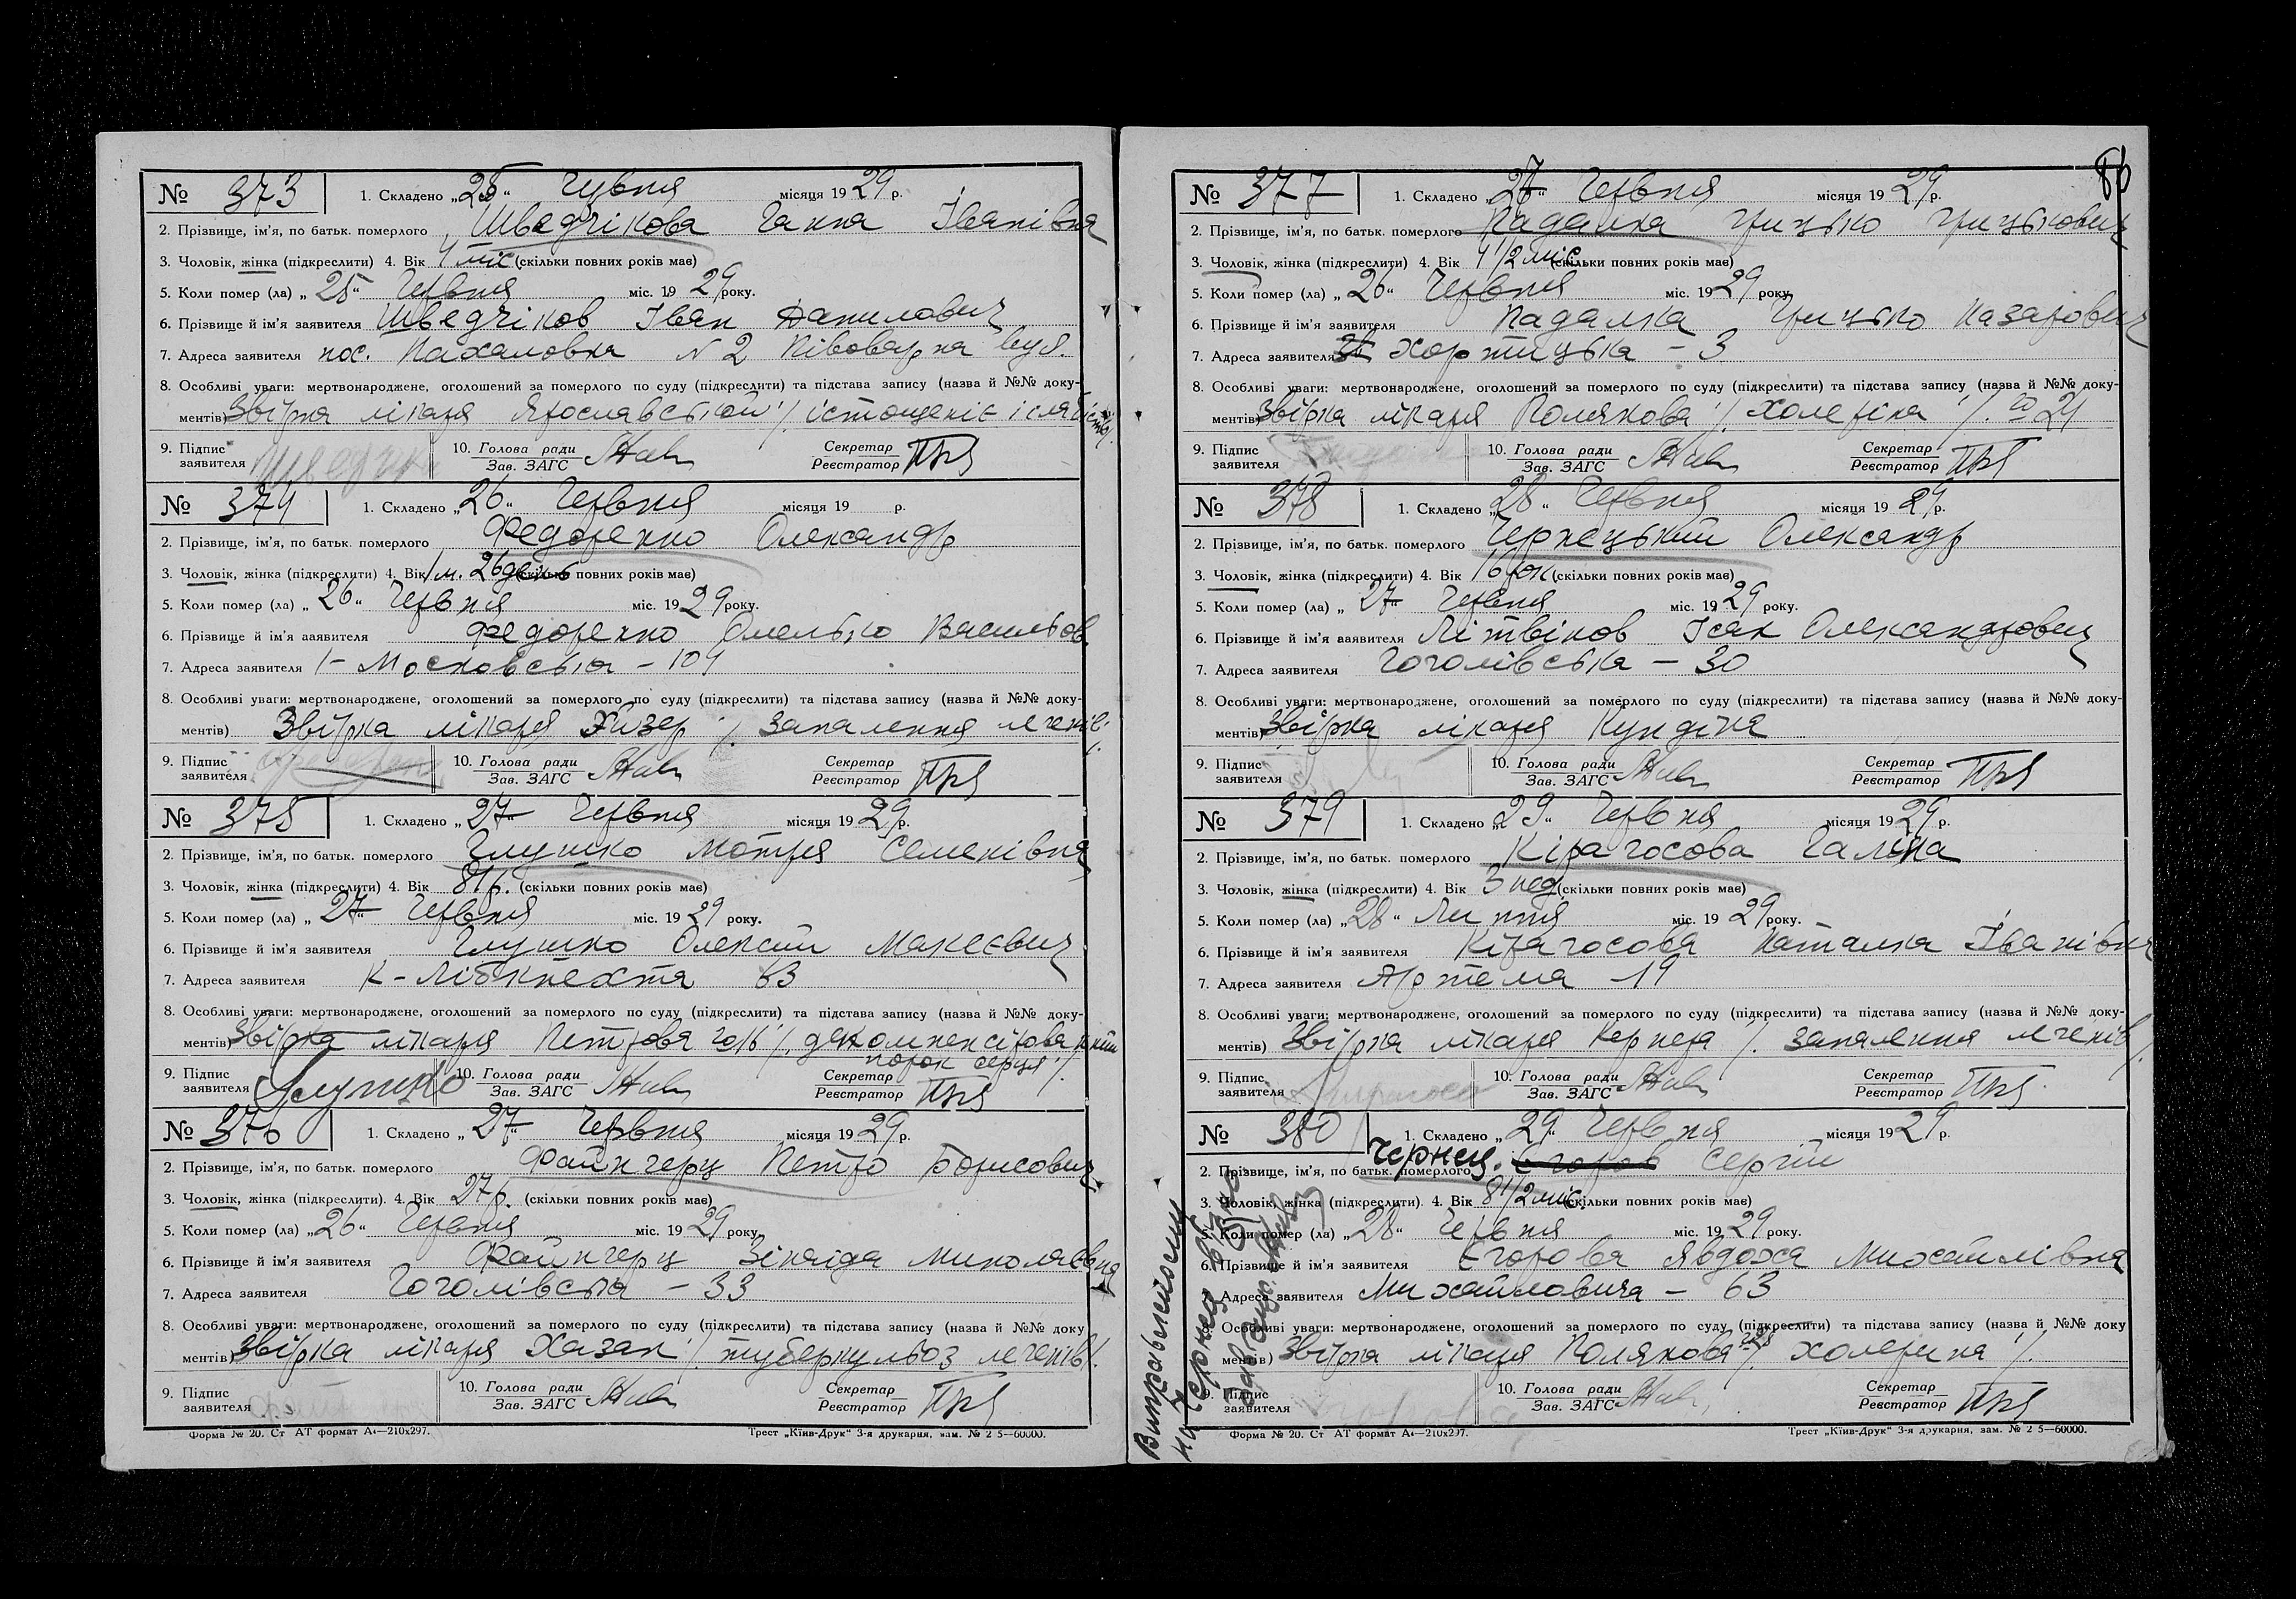 № 373 1. Складено „25“ Червня місяця 1929 р.
2. Прізвище, ім'я, по батьк. померлого Шведчікова Ганна Іванівна
3. Чоловік, жінка (підкреслити) 4. Вік 4 міс (скільки повних років має)
5. Коли помер (ла) „25“ Червня міс. 1929 року.
6. Прізвище й ім'я заявителя Шведчіков Іван Данилович
7. Адреса заявителя пос. Пахаловка N 2 Півоварна вул.
8. Особливі уваги: мертвонароджене, оголошений за померлого по суду (підкреслити) та підстава запису (назва й №№ доку-
ментів) Звірка лікаря Ярославської /. істощеніє і слабість /.
9. Підпис заявителя 10. Голова ради Зав. ЗАГС Секретар Реєстратор
№ 374 1. Складено „26“ Червня місяця 19 р.
2. Прізвище, ім'я, по батьк. померлого Федоренко Олександр
3. Чоловік, жінка (підкреслити) 4. Вік 1 м. 26 день (скільки повних років має)
5. Коли помер (ла) „26“ Червня міс. 1929 року.
6. Прізвище й ім'я заявителя Федоренко Омелько Васильов.
7. Адреса заявителя 1- Московська - 104
8. Особливі уваги: мертвонароджене, оголошений за померлого по суду (підкреслити) та підстава запису (назва й №№ доку-
ментів) Звірка лікаря /. Запалення легенів /.
9. Підпис заявителя 10. Голова ради Зав. ЗАГС Секретар Реєстратор
№ 375 1. Складено „27“ Червня місяця 1929 р.
2. Прізвище, ім'я, по батьк. померлого Глушко Мотря Семенівна
3. Чоловік, жінка (підкреслити) 4. Вік 81 р. (скільки повних років має)
5. Коли помер (ла) „27“ Червня міс. 1929 року.
6. Прізвище й ім'я заявителя Глушко Олексій Макеєвич
7. Адреса заявителя К-Лібкнехта 63
8. Особливі уваги: мертвонароджене, оголошений за померлого по суду (підкреслити) та підстава запису (назва й №№ доку-
ментів) Звірка лікаря Петрова /. декомпенсірований
порок серця /.
9. Підпис заявителя Глушко 10. Голова ради Зав. ЗАГС Секретар Реєстратор
№ 376 1. Складено „27“ Червня місяця 1929 р.
2. Прізвище, ім'я, по батьк. померлого Файнгерц Петро Борисович
3. Чоловік, жінка (підкреслити). 4. Вік 27 р. (скільки повних років має)
5. Коли помер (ла) „26“ Червня міс. 1929 року.
6. Прізвище й ім'я заявителя Файнгерц Зінаїда Миколаєвна
7. Адреса заявителя Гоголівська - 33
8. Особливі уваги: мертвонароджене, оголошений за померлого по суду (підкреслити) та підстава запису (назва й №№ доку
ментів) Звірка лікаря Хазан /. туберкульоз легенів /.
9. Підпис заявителя 10. Голова ради Зав. ЗАГС Секретар Реєстратор
Форма № 20. Ст АТ формат А4—210х297. Трест „Київ-Друк“ 3-я друкарня, зам. № 2 5—60000.
86
№ 377 1. Складено „27“ Червня місяця 1929 р.
2. Прізвище, ім'я, по батьк. померлого Падалка Грицько Грицькович
3. Чоловік, жінка (підкреслити) 4. Вік 4 1/2 міс. (скільки повних років має)
5. Коли помер (ла) „26“ Червня міс. 1929 року
6. Прізвище й ім'я заявителя Падалка Грицько Назарович
7. Адреса заявителя Хортицька - 3
8. Особливі уваги: мертвонароджене, оголошений за померлого по суду (підкреслити) та підстава запису (назва й №№ доку-
ментів) Звірка лікаря Полякова /. холеріна /.
9. Підпис заявителя 10. Голова ради Зав. ЗАГС Секретар Реєстратор
№ 378 1. Складено „28“ Червня місяця 1929 р.
2. Прізвище, ім'я, по батьк. померлого Чернецький Олександр
3. Чоловік, жінка (підкреслити) 4. Вік 16 рок (скільки повних років має)
5. Коли помер (ла) „27“ Червня міс. 1929 року.
6. Прізвище й ім'я заявителя Літвінов Ісак Олександрович
7. Адреса заявителя Гоголівська - 30
8. Особливі уваги: мертвонароджене, оголошений за померлого по суду (підкреслити) та підстава запису (назва й №№ доку-
ментів) Звірка лікаря Кундіна
9. Підпис заявителя 10. Голова ради Зав. ЗАГС Секретар Реєстратор
№ 379 1. Складено „29“ Червня місяця 1929 р.
2. Прізвище, ім'я, по батьк. померлого Кірагосова Галина
3. Чоловік, жінка (підкреслити) 4. Вік 3 нед (скільки повних років має)
5. Коли помер (ла) „28“ Липня міс. 1929 року.
6. Прізвище й ім'я заявителя Кірагосова Наталка Іванівна
7. Адреса заявителя Артема - 19
8. Особливі уваги: мертвонароджене, оголошений за померлого по суду (підкреслити) та підстава запису (назва й №№ доку-
ментів) Звірка лікаря Кернера /. Запалення легенів /.
9. Підпис заявителя 10. Голова ради Зав. ЗАГС Секретар Реєстратор
№ 380 1. Складено „29“ Червня місяця 1929 р.
2. Прізвище, ім'я, по батьк. померлого Чернец. Єгоров Сергій
3. Чоловік, жінка (підкреслити). 4. Вік 8 1/2 міс. (скільки повних років має)
5. Коли помер (ла) „28“ Червня міс. 1929 року.
6. Прізвище й ім'я заявителя Єгорова Явдоха Михайлівна
7. Адреса заявителя Михайловича - 63
8. Особливі уваги: мертвонароджене, оголошений за померлого по суду (підкреслити) та підстава запису (назва й №№ доку
ментів) Звірка лікаря Полякова /. холерина /.
9. Підпис заявителя 10. Голова ради Зав. ЗАГС Секретар Реєстратор
Форма № 20. Ст АТ формат А4—210х297. Трест „Київ-Друк“ 3-я друкарня, зам. № 2 5—60000.
на Чернец